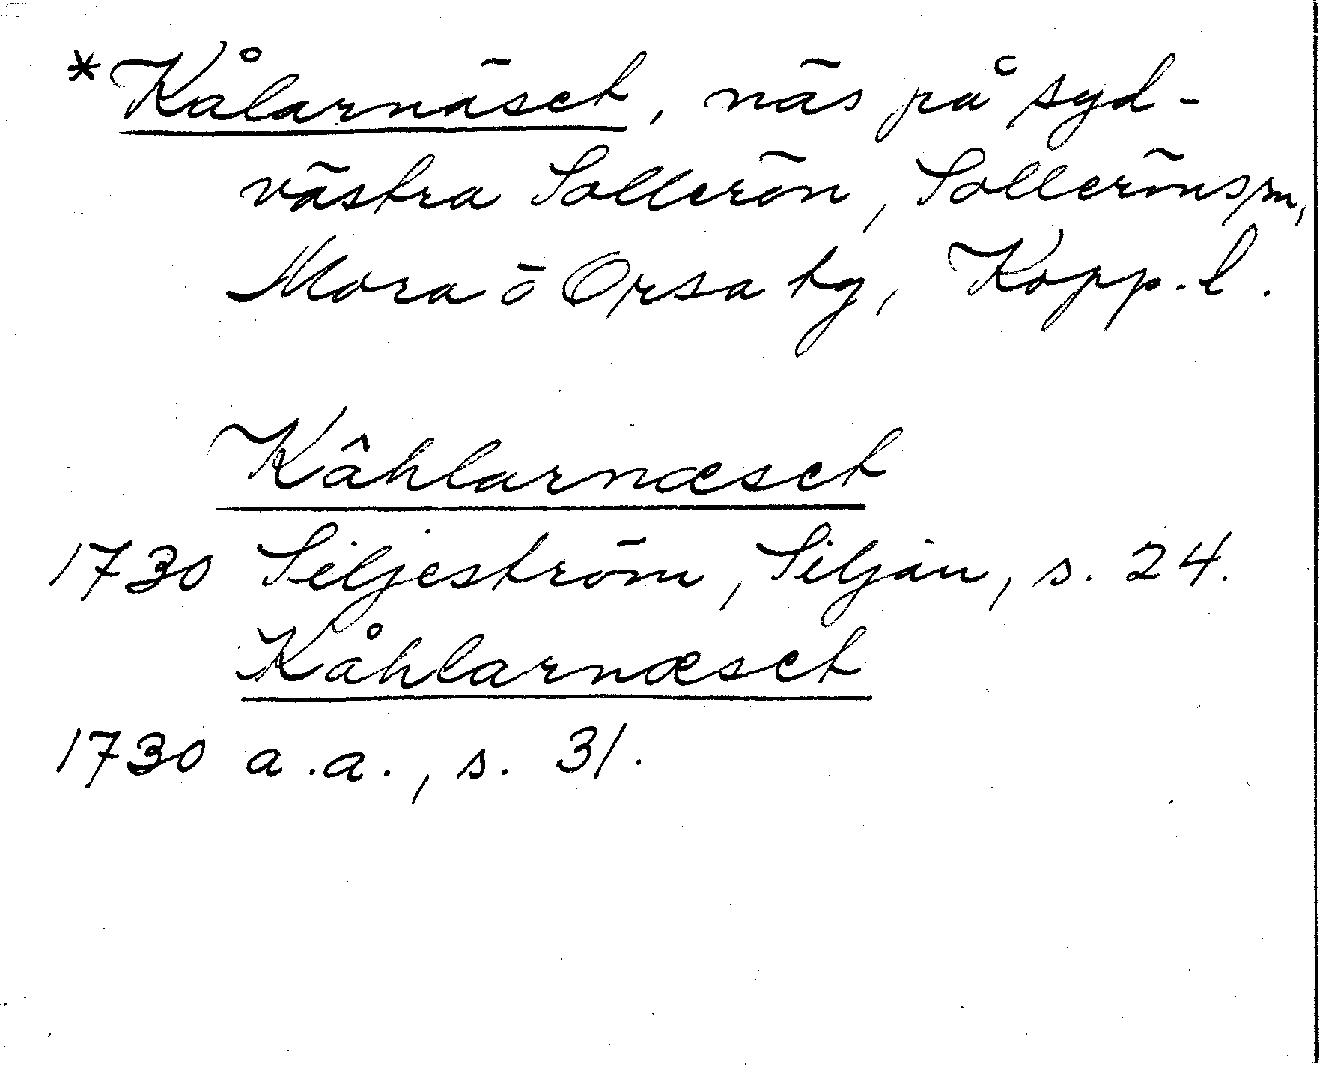 *Kålarnäset, näs på syd-
västra Sollerön, Sollerön sn,
Mora o Orsa tg, Kopp. l.
Kâhlarnæset
1730 Siljeström, Siljan, s. 24.
Kåhlarnæset
1730 a.a., s. 31.